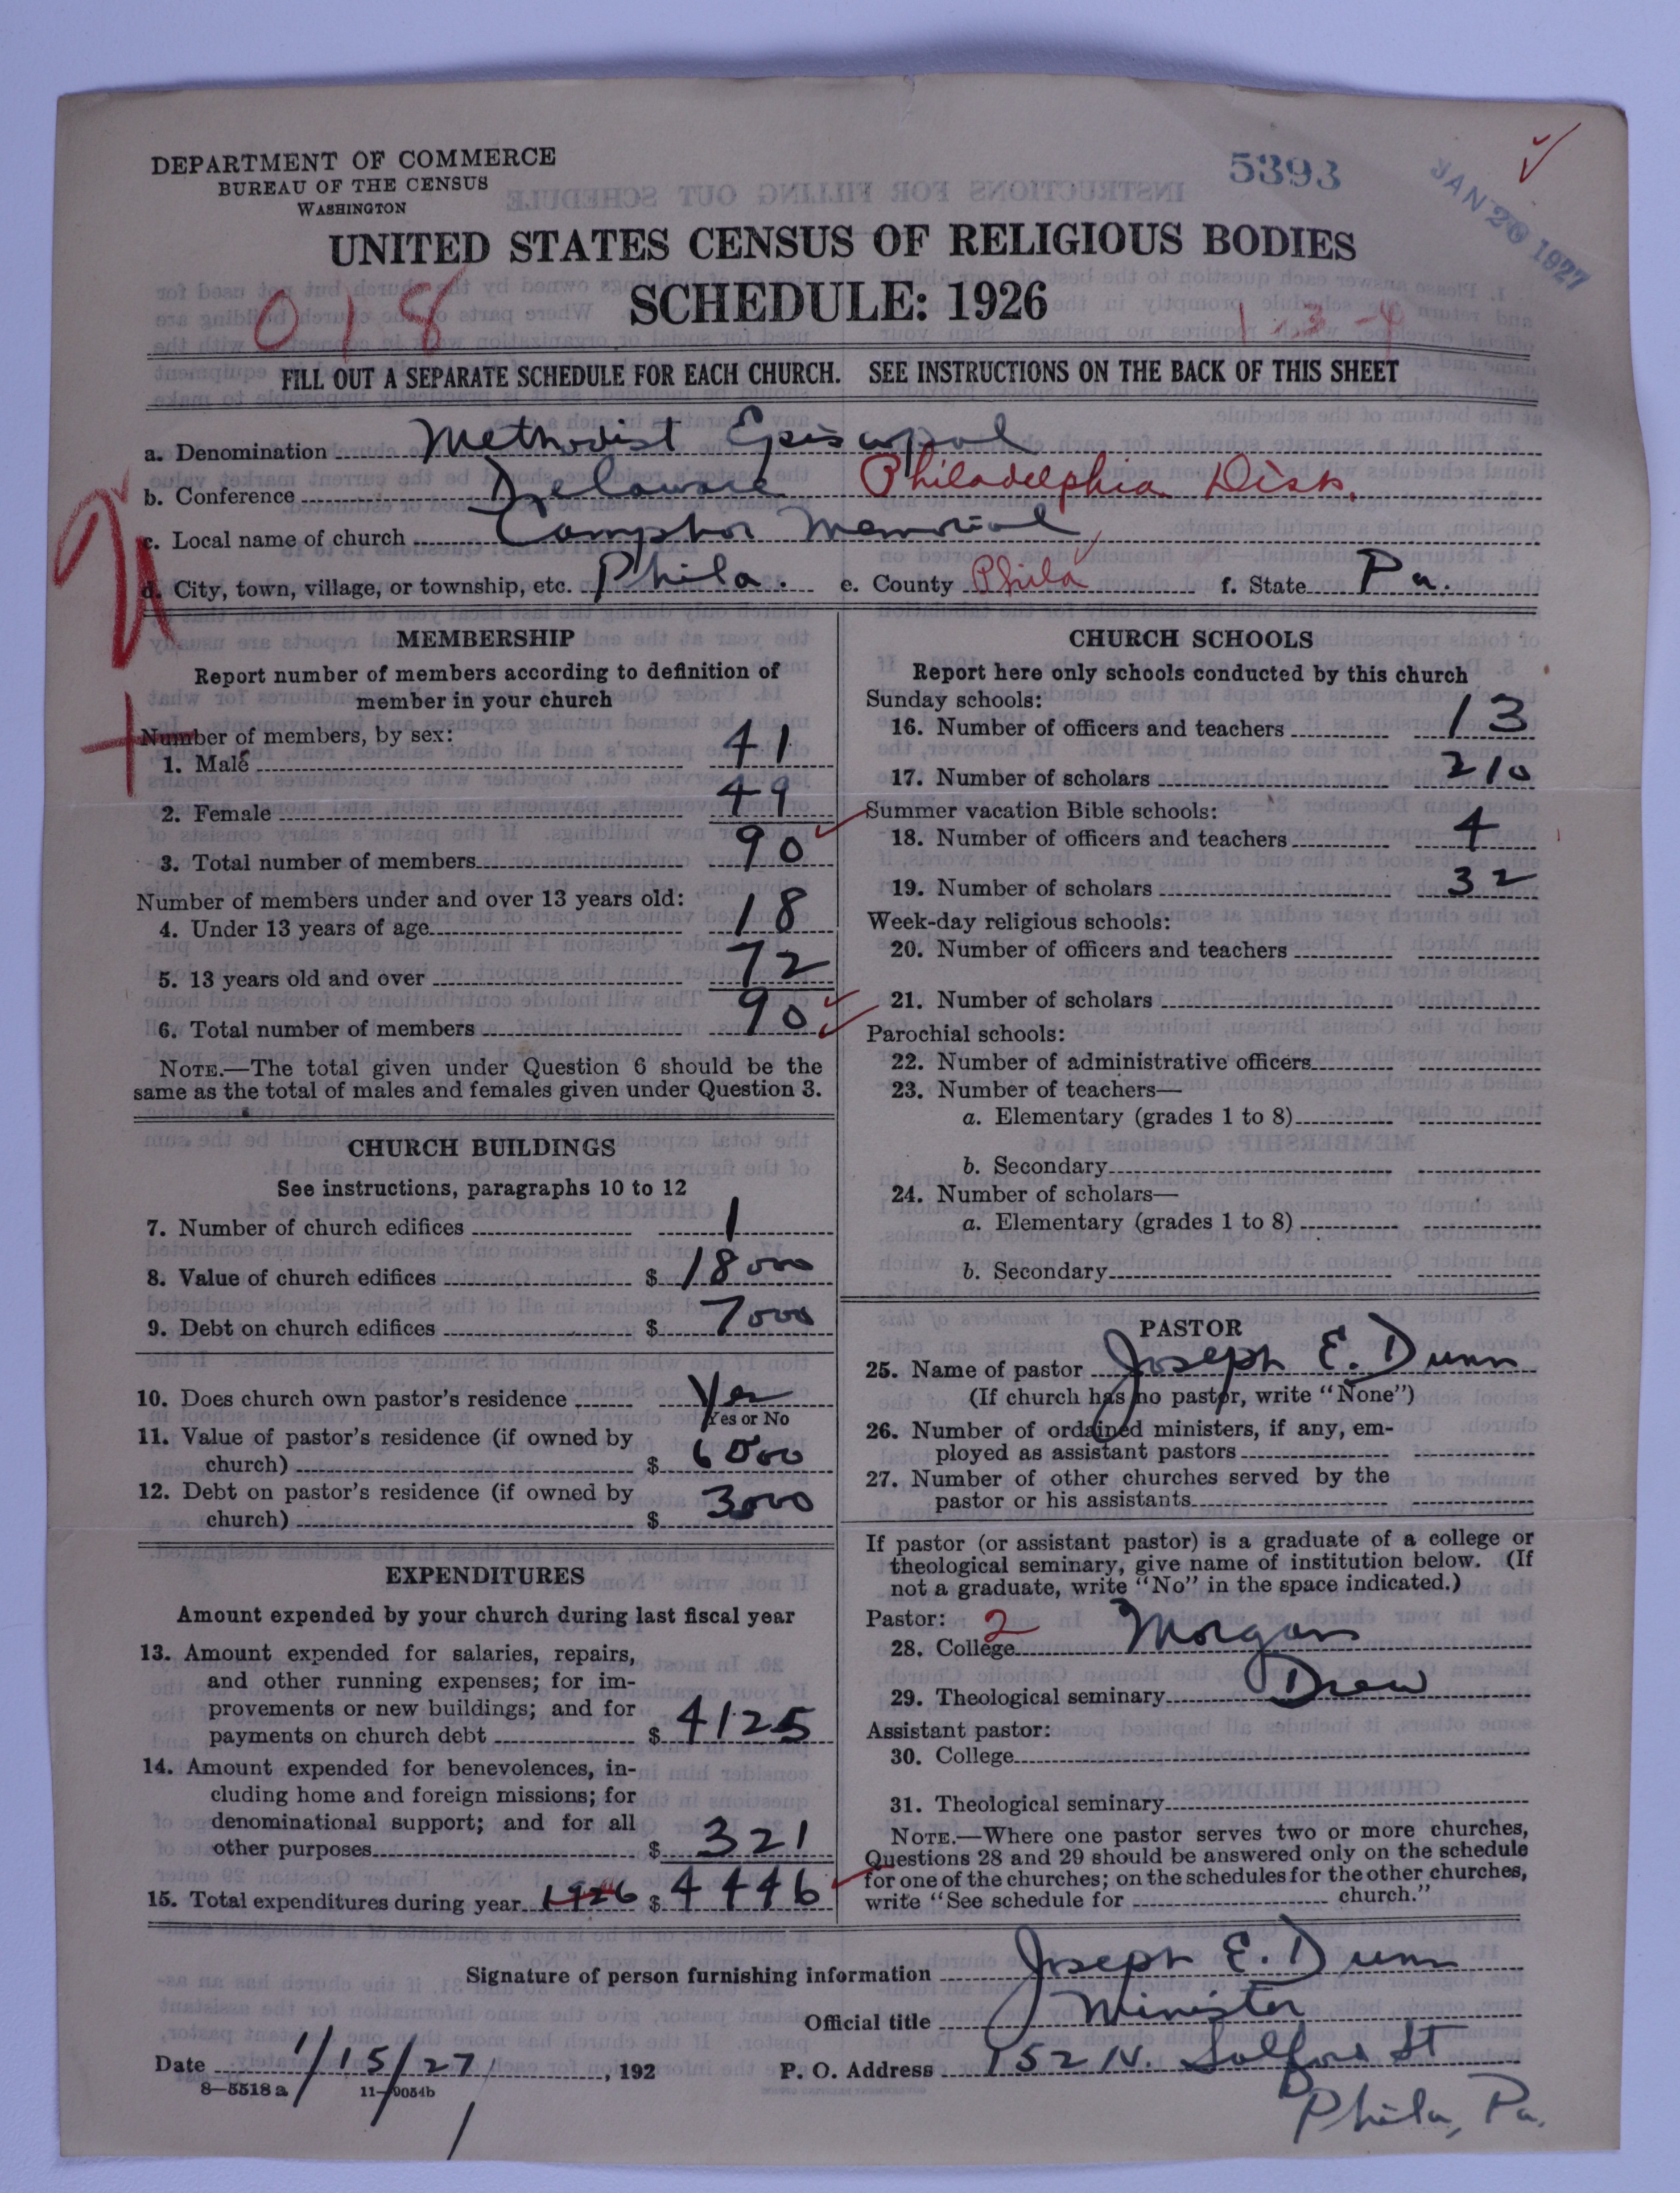 DEPARTMENT OF COMMERCE
BUREAU OF THE CENSUS
WASHINGTON
5393
JAN 20 1927
UNITED STATES CENSUS OF RELIGIOUS BODIES
SCHEDULE: 1926
018
1-3-4
FILL OUT A SEPARATE SCHEDULE FOR EACH CHURCH. SEE INSTRUCTIONS ON THE BACK OF THIS SHEET
a. Denomination Methodist Episcopal
b. Conference Delaware Philadelphia Dist.
c. Local name of church Camphor Memorial
d. City, town, village, or township, etc. Phila. e. County Phila f. State Pa.
MEMBERSHIP
Report number of members according to definition of
member in your church
Number of members, by sex:
1. Male 41
2. Female 49
3. Total number of members 90
Number of members under and over 13 years old:
4. Under 13 years of age 18
5. 13 years old and over 72
6. Total number of members 90
NOTE.—The total given under Question 6 should be the
same as the total of males and females given under Question 3.
CHURCH BUILDINGS
See instructions, paragraphs 10 to 12
7. Number of church edifices 1
8. Value of church edifices $ 18000
9. Debt on church edifices $ 7000
10. Does church own pastor's residence Yes
Yes or No
11. Value of pastor's residence (if owned by
church) $ 6000
12. Debt on pastor's residence (if owned by
church) $ 3000
EXPENDITURES
Amount expended by your church during last fiscal year
13. Amount expended for salaries, repairs,
and other running expenses; for im-
provements or new buildings; and for
payments on church debt $ 4125
14. Amount expended for benevolences, in-
cluding home and foreign missions; for
denominational support; and for all
other purposes $ 321
15. Total expenditures during year 1926 $ 4446
CHURCH SCHOOLS
Report here only schools conducted by this church
Sunday schools:
16. Number of officers and teachers 13
17. Number of scholars 210
Summer vacation Bible schools:
18. Number of officers and teachers 4
19. Number of scholars 32
Week-day religious schools:
20. Number of officers and teachers
21. Number of scholars
Parochial schools:
22. Number of administrative officers
23. Number of teachers—
a. Elementary (grades 1 to 8)
b. Secondary
24. Number of scholars—
a. Elementary (grades 1 to 8)
b. Secondary
PASTOR
25. Name of pastor Joseph E. Dunn
(If church has no pastor, write "None")
26. Number of ordained ministers, if any, em-
ployed as assistant pastors
27. Number of other churches served by the
pastor or his assistants
If pastor (or assistant pastor) is a graduate of a college or
theological seminary, give name of institution below. (If
not a graduate, write "No" in the space indicated.)
Pastor: 2
28. College Morgan
29. Theological seminary Drew
Assistant pastor:
30. College
31. Theological seminary
NOTE.—Where one pastor serves two or more churches,
Questions 28 and 29 should be answered only on the schedule
for one of the churches; on the schedules for the other churches,
write "See schedule for church."
Signature of person furnishing information Joseph E. Dunn
Official title Minister
Date 1/15/27, 192 P. O. Address 152 N. Salford St
8-5518 a 11-9054b
Phila, Pa.